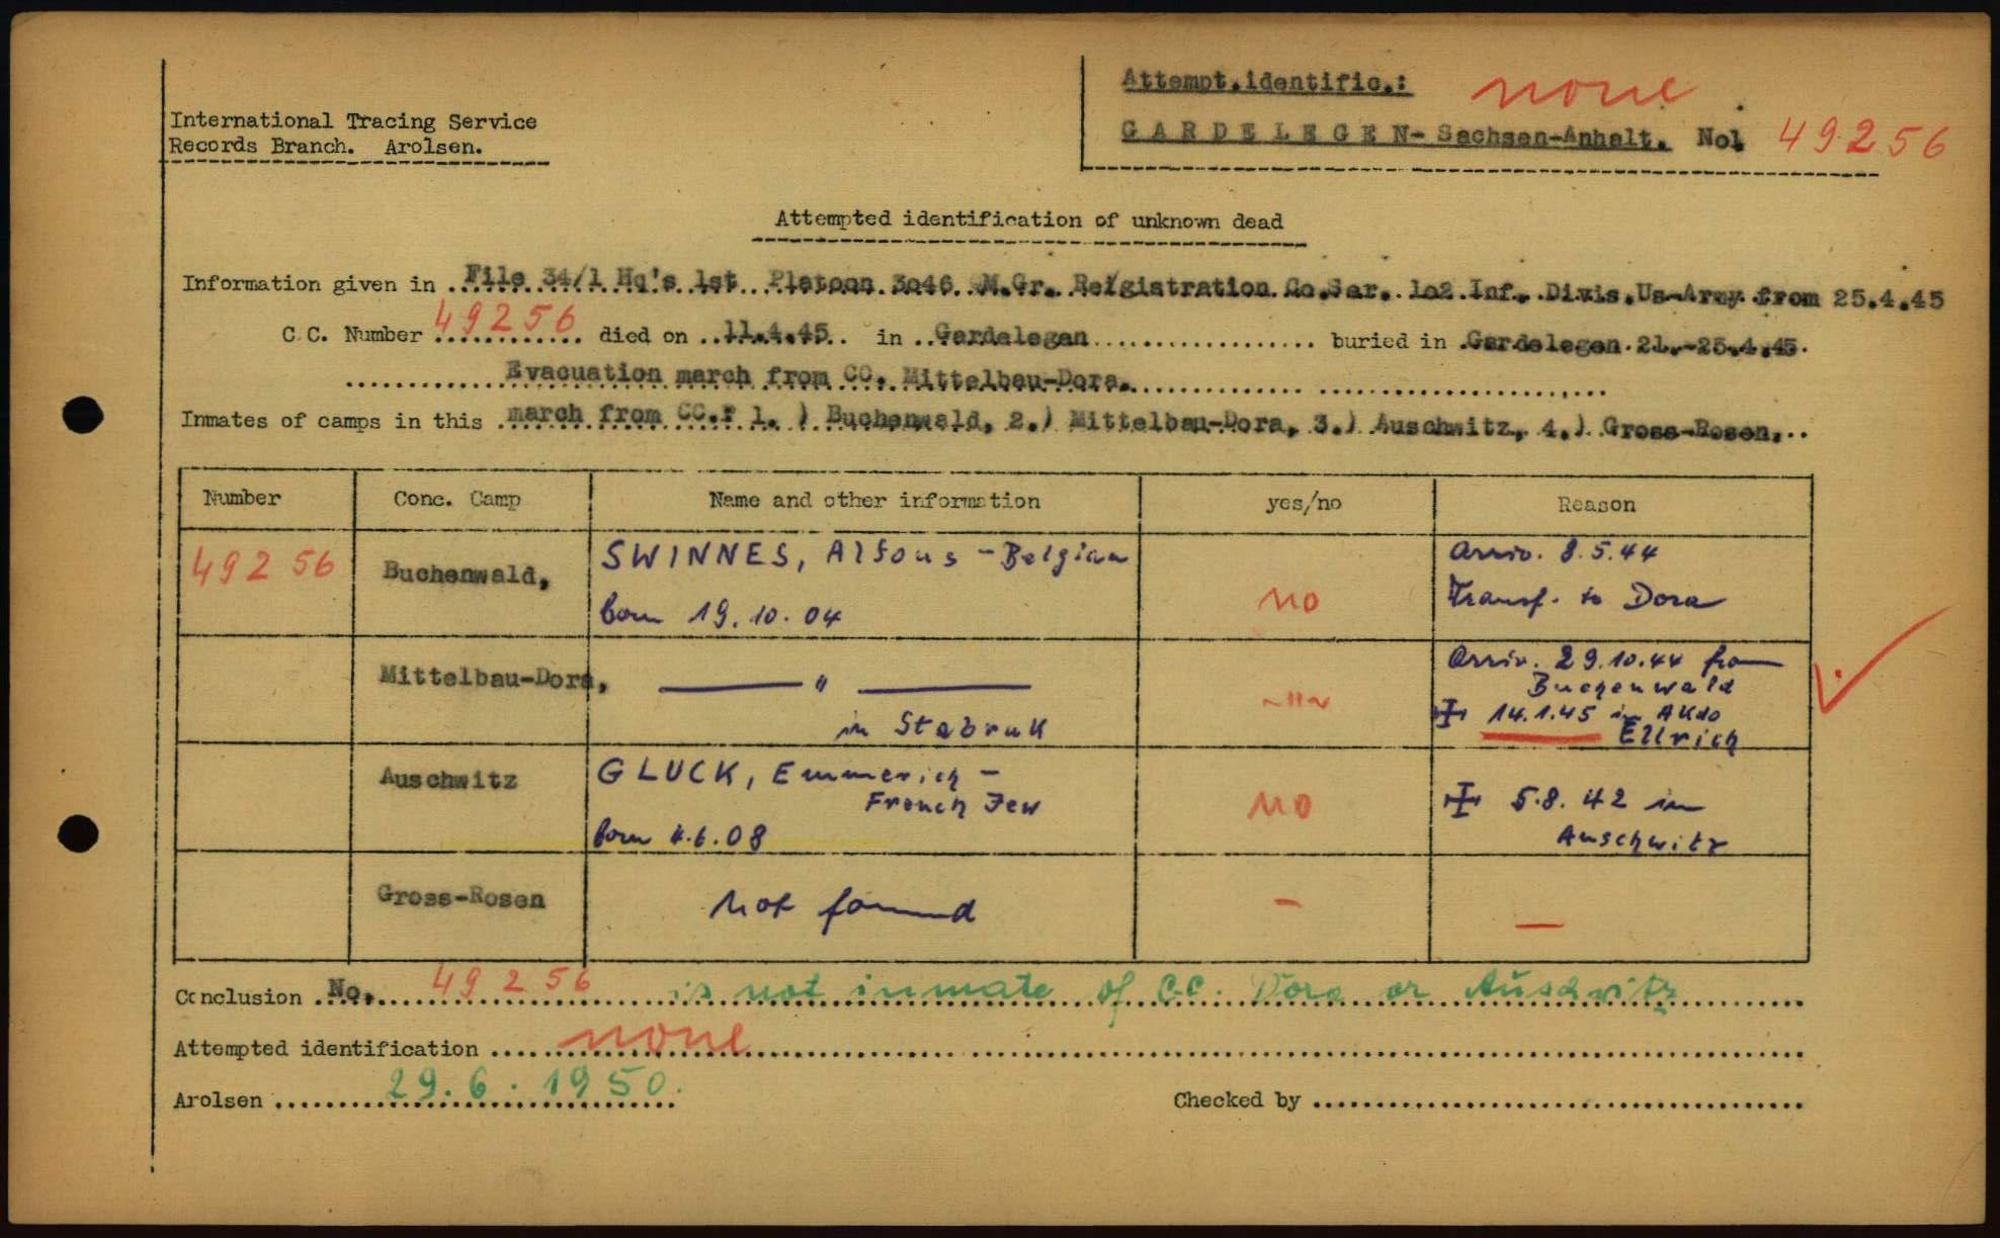 Attempt.identific.: none
International Tracing Service
Records Branch. Arolsen.
G A R D E L E G E N- Sachsen-Anhalt. No. 49256
Attempted identification of unknown dead
Information given in File 34/1 Hq's 1st Platoon 3o46 M.Gr. Re/gistration Co.Sar. 1o2 Inf. Divis.Us-Army from 25.4.45
C.C. Number 49256 died on 11.4.45 in Gardelegen buried in Gardelegen 21.-25.4.45.
Evacuation march from CC. Mittelbau-Dora.
Inmates of camps in this march from CC.: 1. ) Buchenwald, 2.) Mittelbau-Dora, 3.) Auschwitz, 4.) Gross-Rosen,
Number Conc. Camp Name and other information yes/no Reason
49256 Buchenwald, SWINNES, Alfons - Belgian no Arriv. 8.5.44
born 19.10.04 Transf. to Dora
Mittelbau-Dora, — " — ~"~ Arriv. 29.10.44 from
Buchenwald
in Stabruk 14.1.45 in AKdo
Ellrich
Auschwitz GLUCK, Emmerich - no
French Jew 5.8.42 in
born 4.6.08 Auschwitz
Gross-Rosen not found - —
Conclusion No. 49256 is not inmate of C.C. Dora or Auschwitz
Attempted identification none
Arolsen 29.6.1950. Checked by